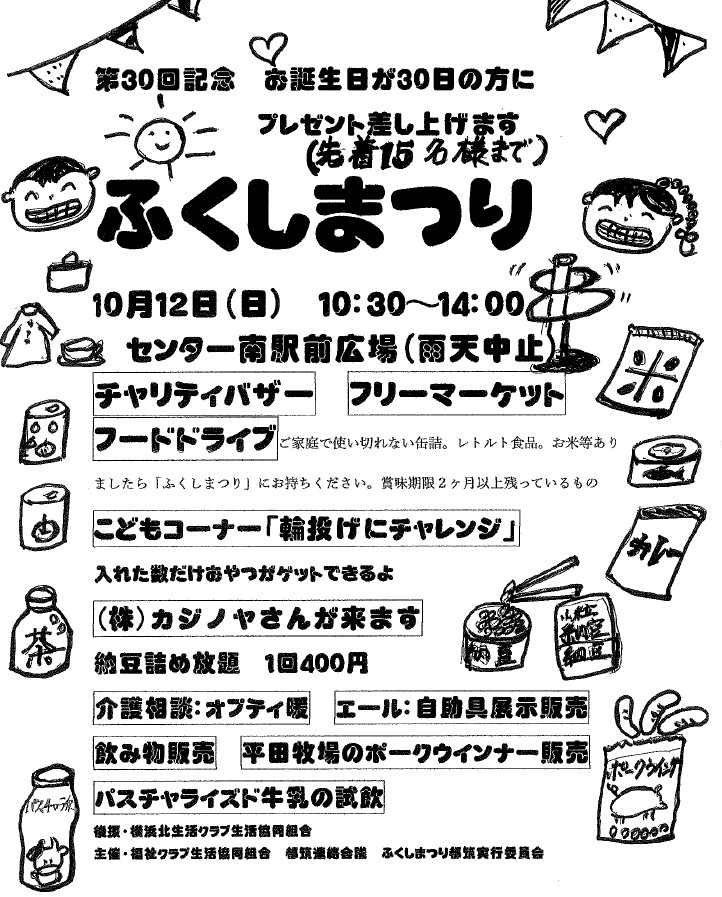 第30回記念　お誕生日が30日の方に
プレゼント差し上げます
(先着15名様まで)
ふくしまつり
10月12日(日)　10:30～14:00
センター南駅前広場(雨天中止)
チャリティバザー　フリーマーケット
フードドライブ ご家庭で使い切れない缶詰。レトルト食品。お米等あり
ましたら「ふくしまつり」にお持ちください。賞味期限２ヶ月以上残っているもの
米
こどもコーナー「輪投げにチャレンジ」
カレー
入れた数だけおやつがゲットできるよ
(株)カジノヤさんが来ます
茶
納豆
小粒
納豆
納豆
納豆詰め放題　1回400円
介護相談:オプティ暖　エール:自助具展示販売
飲み物販売　平田牧場のポークウインナー販売
ポークウインナ
パスチャライズド牛乳の試飲
後援・横浜北生活クラブ生活協同組合
主催・福祉クラブ生活協同組合　都筑連絡会議　ふくしまつり都筑実行委員会